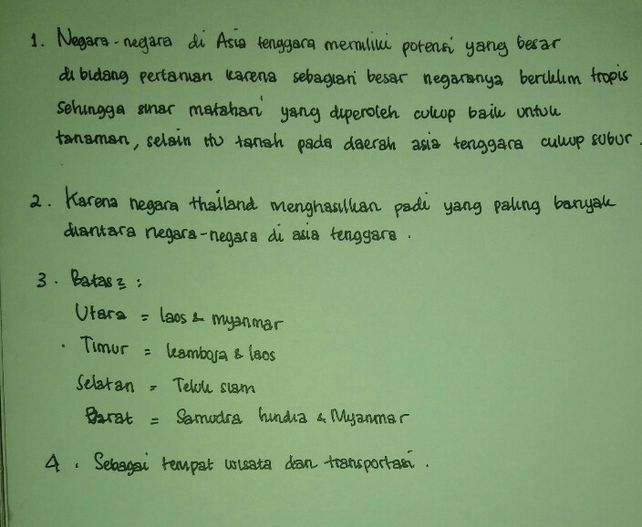 1. Negara-negara di Asia tenggara memiliki potensi yang besar
di bidang pertanian karena sebagian besar negaranya beriklim tropis
Sehingga sinar matahari yang diperoleh cukup baik untuk
tanaman, selain itu tanah pada daerah asia tenggara cukup subur.
2. Karena negara thailand menghasilkan padi yang paling banyak
diantara negara-negara di asia tenggara.
3. Batas2 :
Utara = laos & myanmar
. Timur = kamboja & laos
Selatan = Teluk siam
Barat = Samudra hindia & Myanmar
4. Sebagai tempat wisata dan transportasi.